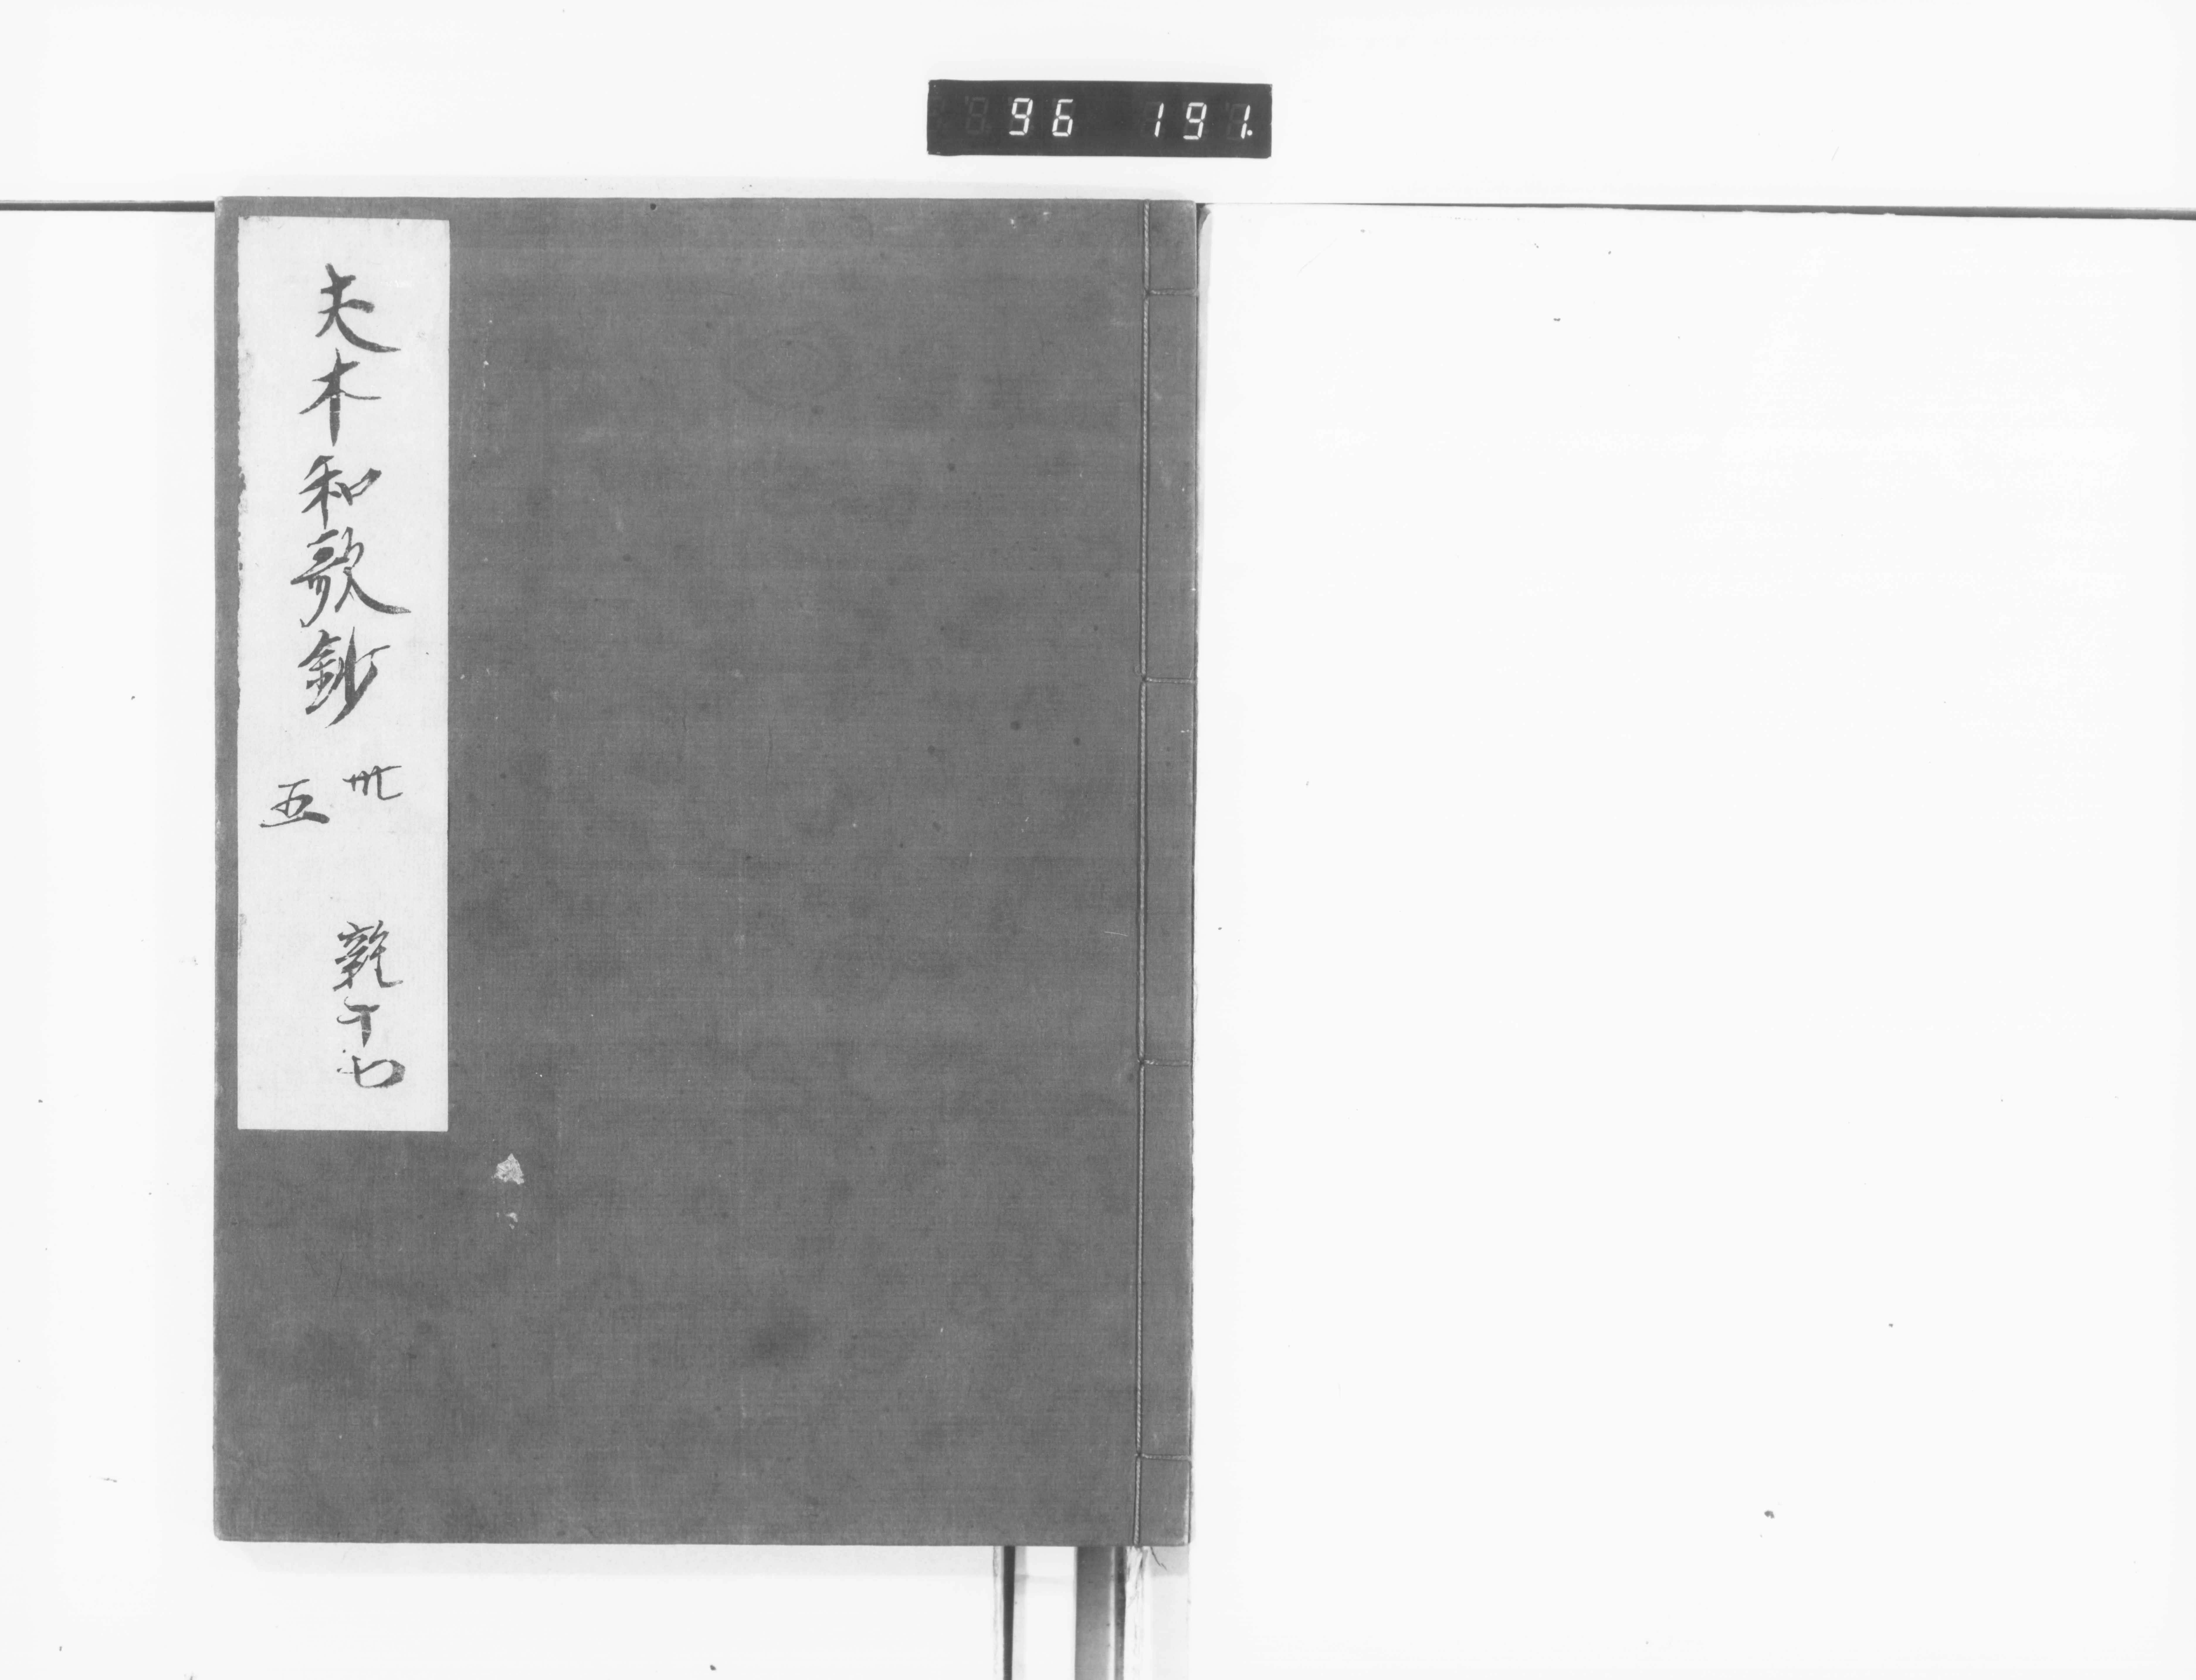 96 191.
夫木和歌鈔 卅五 雜十七